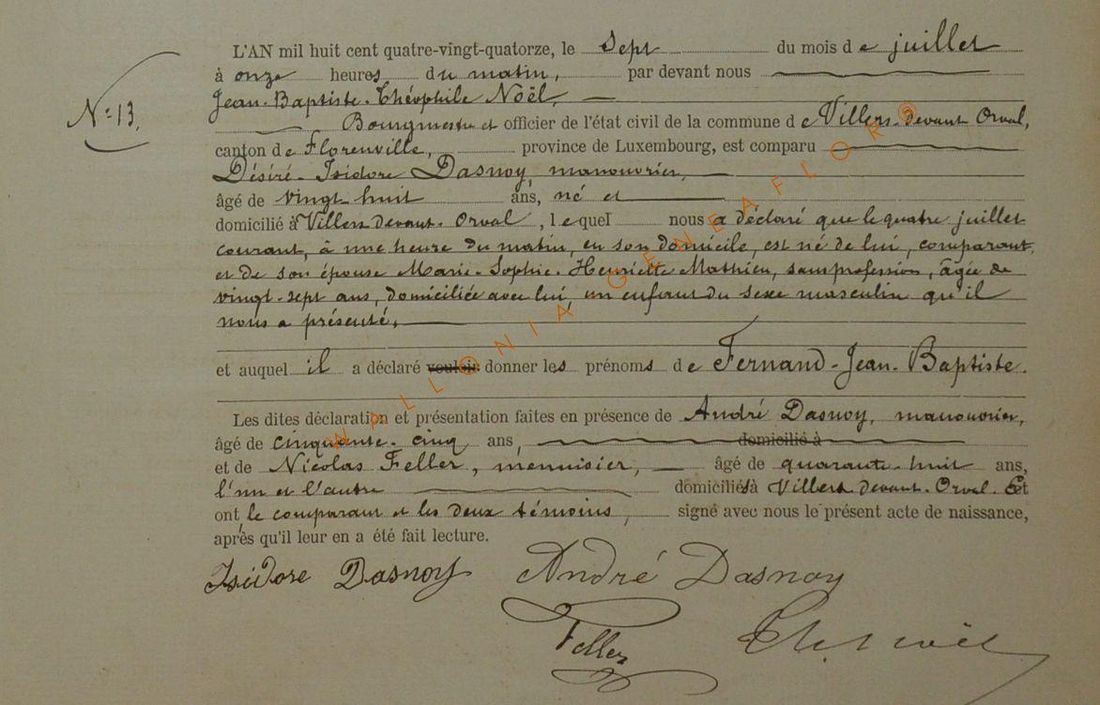 L'AN mil huit cent quatre-vingt-quatorze, le sept du mois de juillet
à onze heures du matin, par devant nous
Nº 13. Jean-Baptiste-Théophile Noël,
Bourgmestre et officier de l'état civil de la commune de Villers-devant Orval,
canton de Florenville, province de Luxembourg, est comparu
Désiré-Isidore Dasnoy, manouvrier,
âgé de vingt huit ans, né et
domicilié à Villers devant-Orval, lequel nous a déclaré que le quatre juillet
courant, à une heure du matin, en son domicile, est né de lui, comparant,
et de son épouse Marie-Sophie-Henriette Mathieu, sans profession, âgée de
vingt-sept ans, domiciliée avec lui, un enfant du sexe masculin qu'il
nous a présenté,
et auquel il a déclaré vouloir donner les prénoms de Fernand-Jean-Baptiste.
Les dites déclaration et présentation faites en présence de André Dasnoy, manouvrier,
âgé de cinquante-cinq ans, domicilié à
et de Nicolas Feller, menuisier, âgé de quarante-huit ans,
l'un et l'autre domiciliés à Villers devant-Orval. Et
ont le comparant et les deux témoins, signé avec nous le présent acte de naissance,
après qu'il leur en a été fait lecture.
Isidore Dasnoy André Dasnoy
Feller Th. Noël
WALLONIA GENEAFLOR©